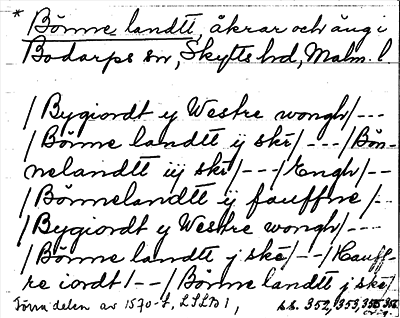 * Bönne landtt, åkrar och äng i
Bodarps sn, Skytts hd, Malm. l
/Bygiordt y Westre wongh/---
/Bönne landtt ij skě/---/Bön-
nelandtt iij skě/---/Engh/--
/Bönnelandtt ij fauffne/--
/Bygiordt y Westre wongh/---
/Bönne landtt j skě/--/Hauff-
re iordt/--/Bönne landtt j skě/
Förra delen av 1570-t, LLLB 1, s.s. 352, 353, 355